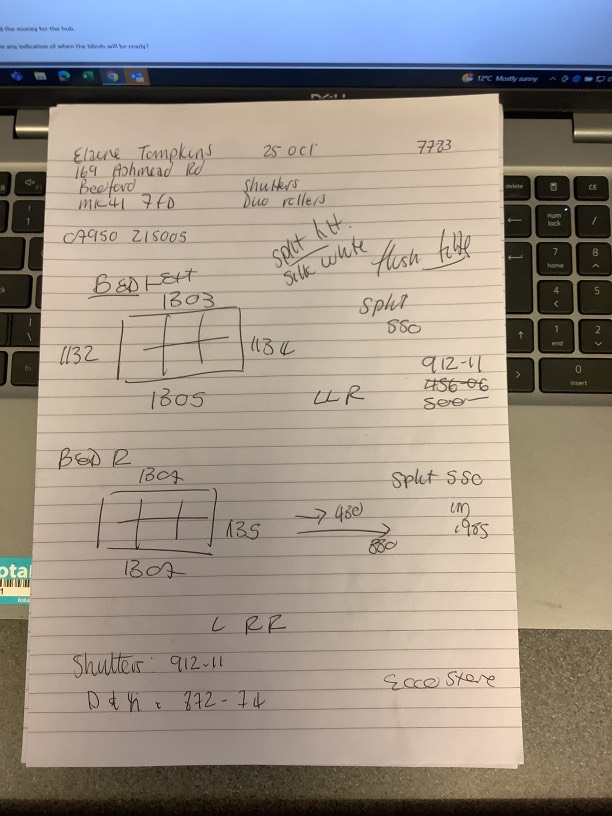 d the money for the hub.
e any indication of when the blinds will be ready?
12°C Mostly sunny
DELL
Elaine Tompkins 25 Oct 7783
169 Ashmead Rd
Bedford Shutters
MK41 7FD Duo rollers
07950 215005
split tilt.
silk white flush
BED LEFT
1303
1132 1134
1305
Split
550
LLR
912-11
456-06
500
BED R
1307
1135
1307
Split 550
→ 430
880
LRR
Shutters: 912-11
872-74
Ecco
delete
num
lock
home
end
insert
CE
fn
total